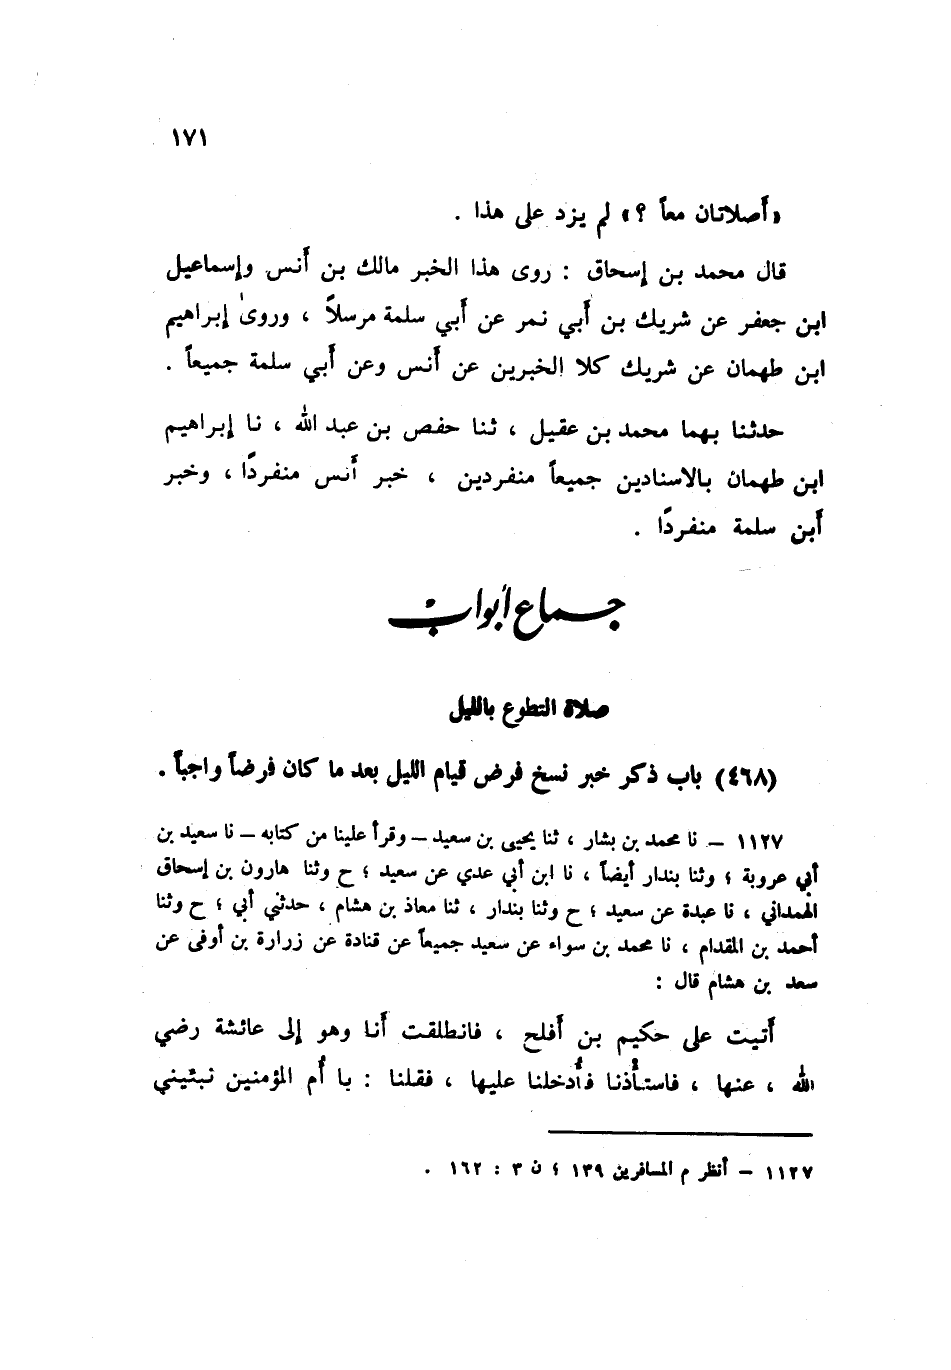 ١٧١
«أصلاتان معاً ؟» لم يزد على هذا .
قال محمد بن إسحاق : روى هذا الخبر مالك بن أنس وإسماعيل
ابن جعفر عن شريك بن أبي نمر عن أبي سلمة مرسلاً ، وروىٰ إبراهيم
ابن طهمان عن شريك كلا الخبرين عن أنس وعن أبي سلمة جميعاً .
حدثنا بهما محمد بن عقيل ، ثنا حفص بن عبد الله ، نا إبراهيم
ابن طهمان بالاسنادين جميعاً منفردين ، خبر أنس منفردًا ، وخبر
أبن سلمة منفردًا .
جماع أبواب
صلاة التطوع بالليل
(٤٦٨) باب ذكر خبر نسخ فرض قيام الليل بعد ما كان فرضاً واجباً .
١١٢٧ – نا محمد بن بشار ، ثنا يحيى بن سعيد – وقرأ علينا من كتابه – نا سعيد بن
أبي عروبة ؛ وثنا بندار أيضاً ، نا ابن أبي عدي عن سعيد ؛ ح وثنا هارون بن إسحاق
الهمداني ، نا عبدة عن سعيد ؛ ح وثنا بندار ، ثنا معاذ بن هشام ، حدثني أبي ؛ ح وثنا
أحمد بن المقدام ، نا محمد بن سواء عن سعيد جميعاً عن قتادة عن زرارة بن أوفى عن
سعد بن هشام قال :
أتيت على حكيم بن أفلح ، فانطلقت أنا وهو إلى عائشة رضي
الله ، عنها ، فاستأذنا فأُدخلنا عليها ، فقلنا : يا أُم المؤمنين نبئيني
١١٢٧ – أنظر م المسافرين ١٣٩ ؛ ن ٣ : ١٦٢ .